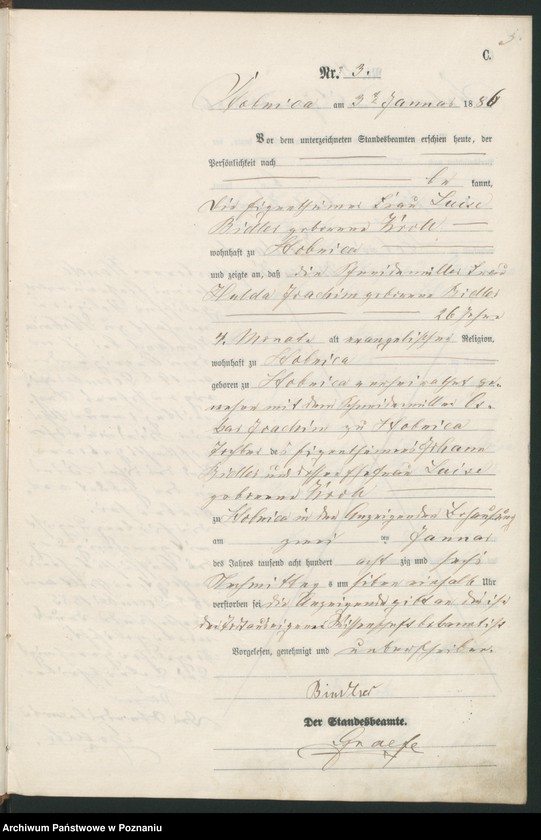 5.
C.
Nr. 3.
Stobnica am 3 Januar 1886
Vor dem unterzeichneten Standesbeamten erschien heute, der
Persönlichkeit nach
be kannt,
die Eigenthümer Frau Luise
Bidler geborene Kroll
wohnhaft zu Stobnica
und zeigte an, daß die Schneidemüller Frau
Hulda Joachim geborene Bidler
26 Jahre
4 Monate alt evangelischer Religion,
wohnhaft zu Stobnica
geboren zu Stobnica verheirathet ge-
wesen mit dem Schneidemüller Os-
kar Joachim zu Stobnica
Tochter des Eigenthümers Johann
Bidler und dessen Ehefrau Luise
geborene Kroll
zu Stobnica in der Anzeigenden Behausung
am zwei ten Januar
des Jahres tausend acht hundert acht zig und sechs
Nachmittags um sieben einhalb Uhr
verstorben sei die Anzeigende gibt an daß
sie aus eigener Wissenschaft
Vorgelesen, genehmigt und unterschrieben
Der Standesbeamte.
Graefe
Archiwum Państwowe w Poznaniu